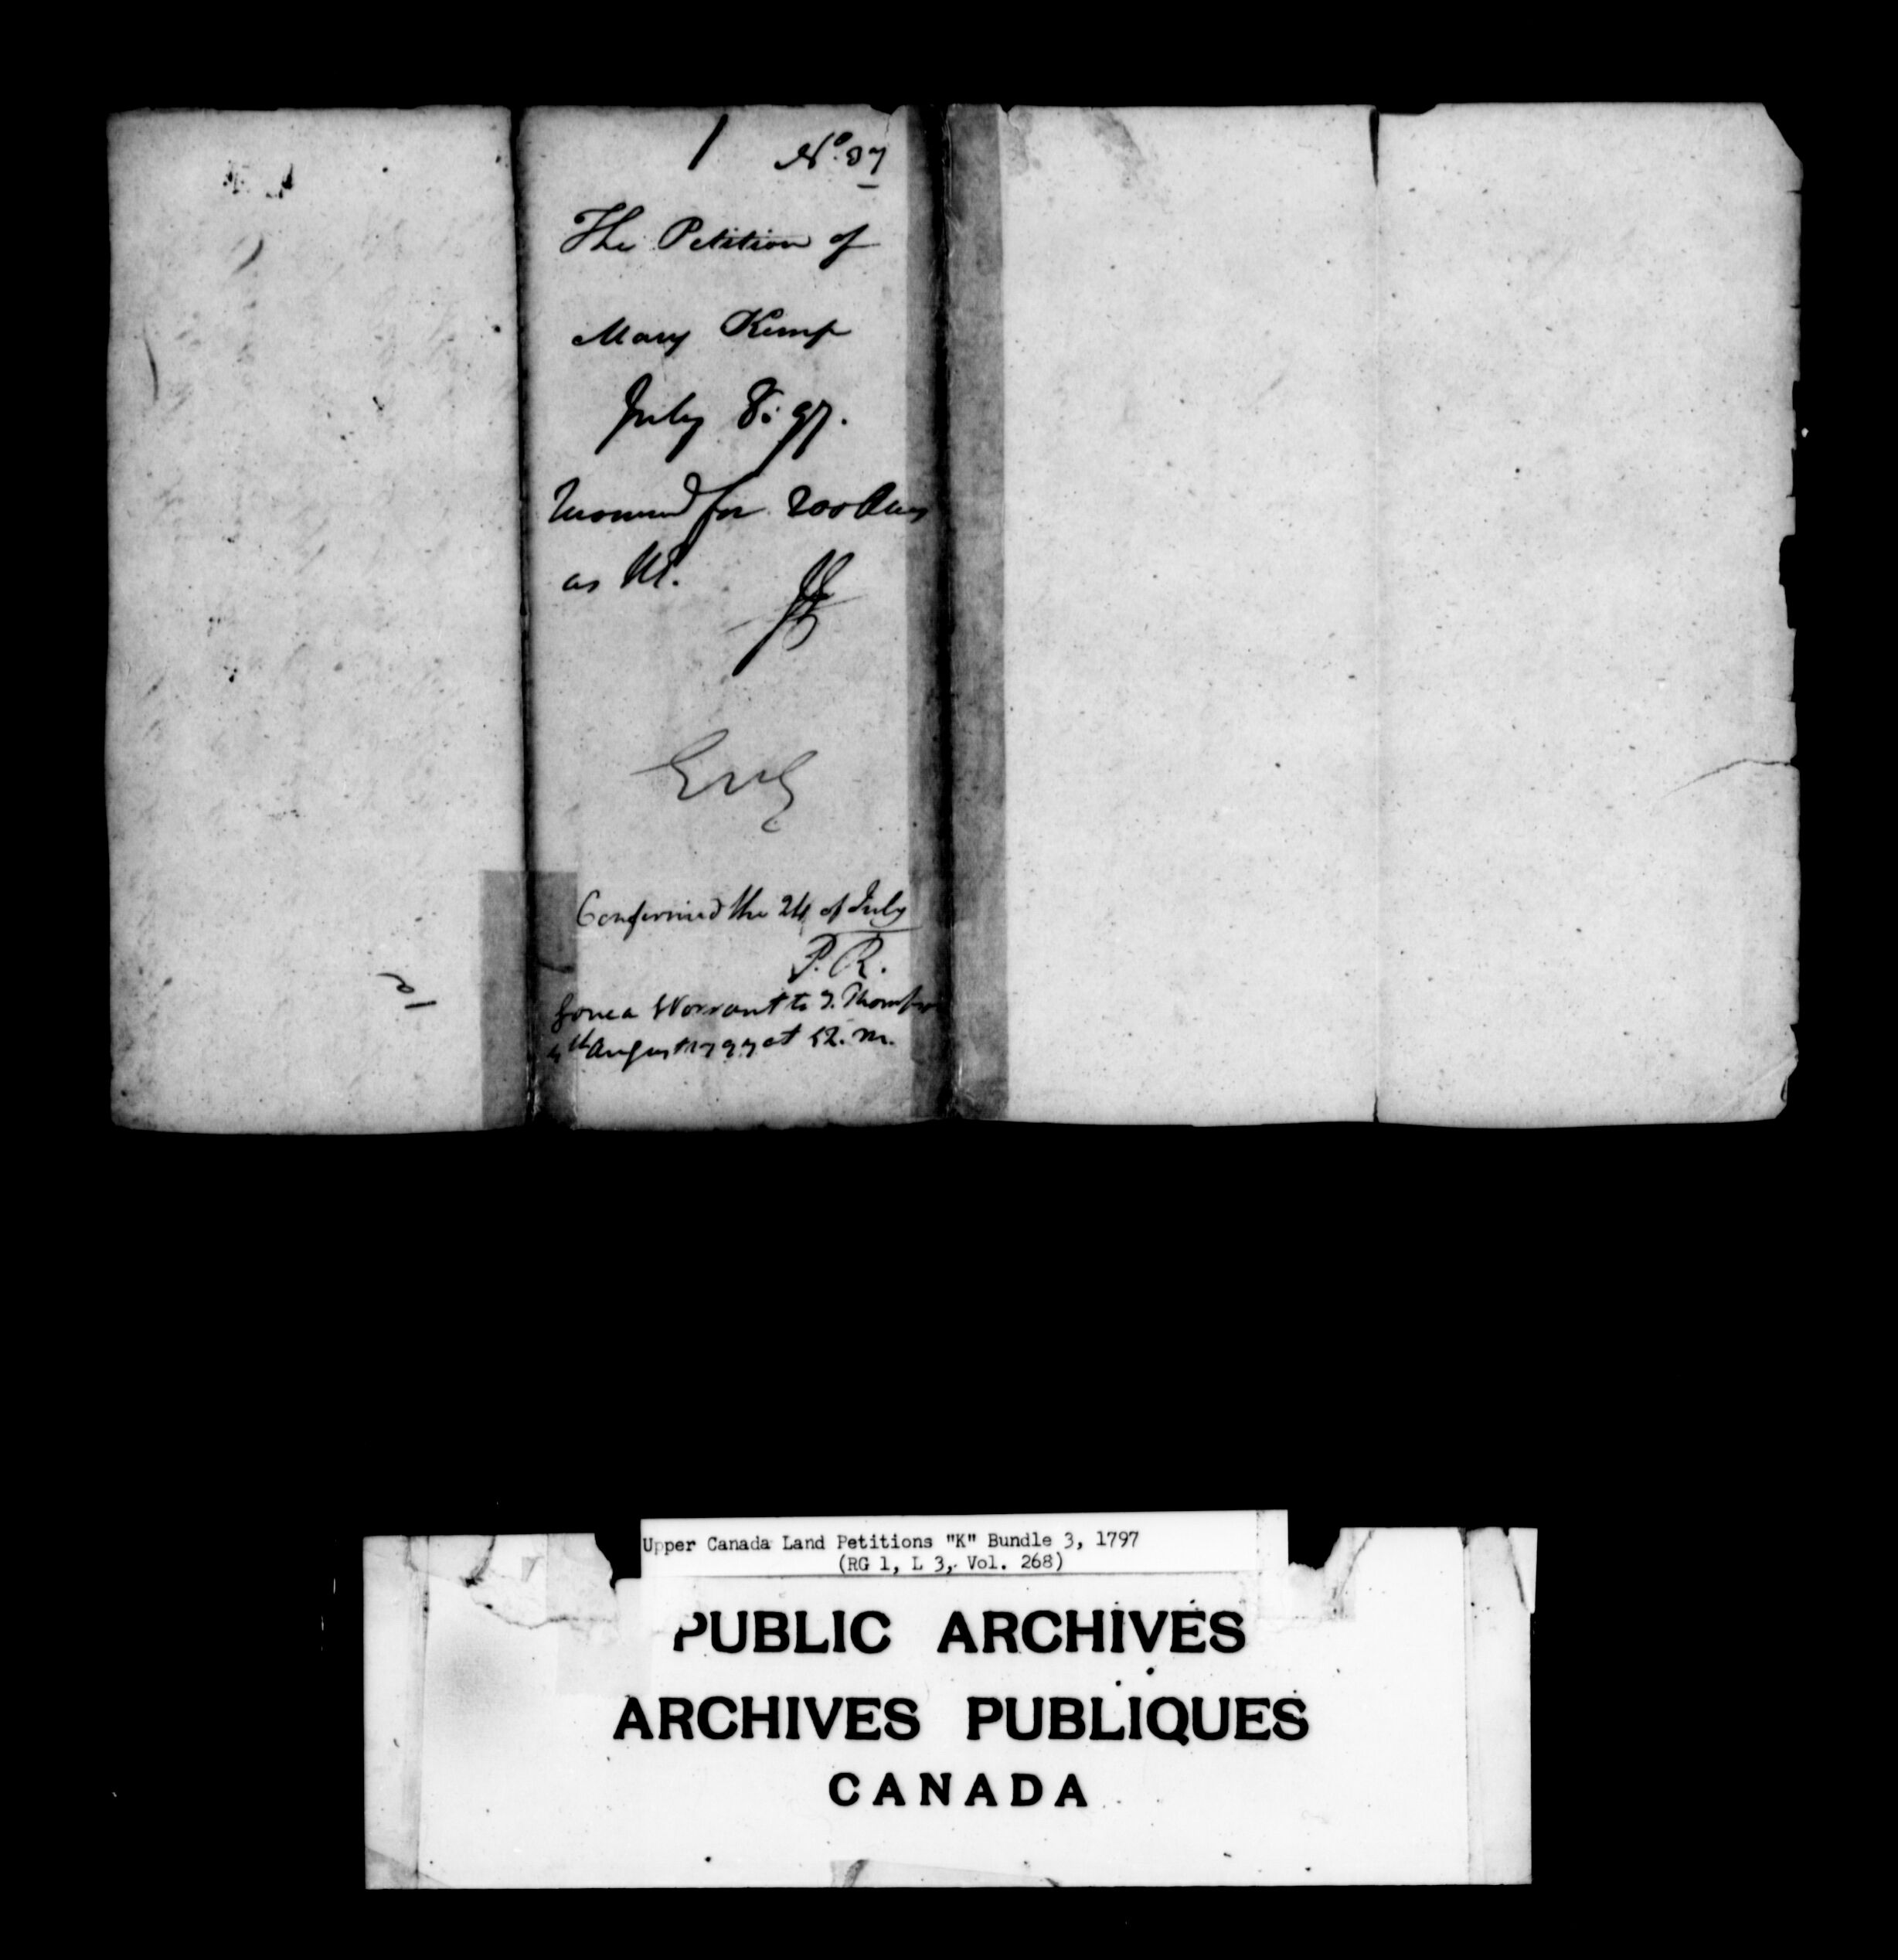 1 No. 37
The Petition of
Mary Kemp
July 8: 97.
for 200 Acres
as
Confirmed the 24 of July
P. R.
Gave a Warrant to T. Thompson
4th August 1797 at 12. m.
Upper Canada Land Petitions "K" Bundle 3, 1797
(RG 1, L 3, Vol. 268)
PUBLIC ARCHIVES
ARCHIVES PUBLIQUES
CANADA